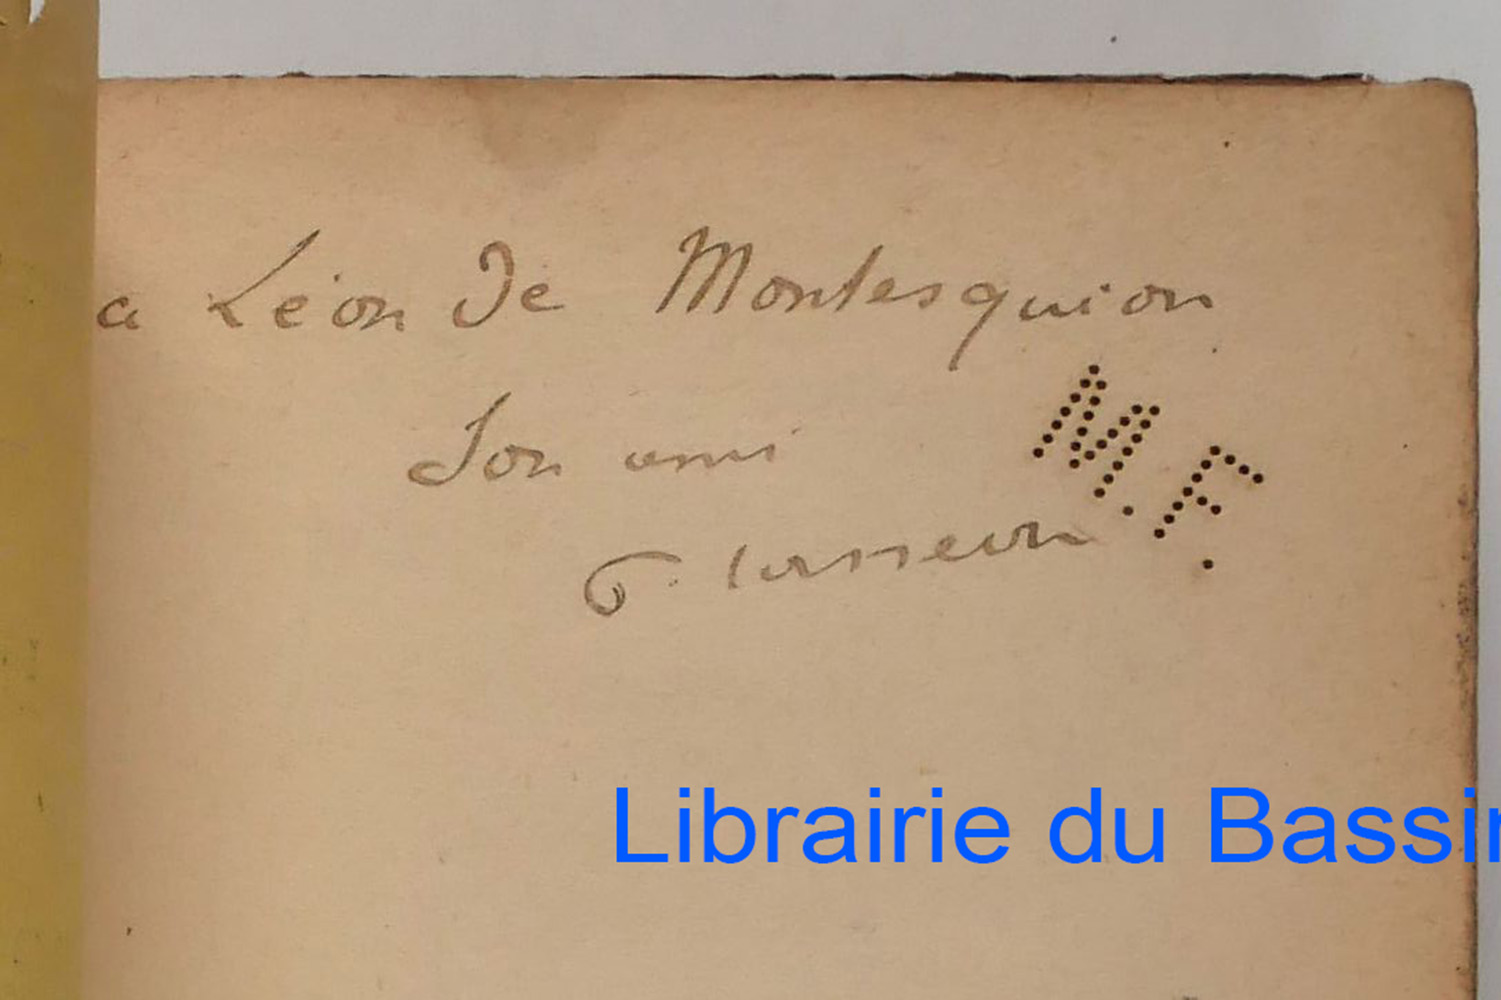 a Léon de Montesquiou
Son ami
M.F.
Librairie du Bassin